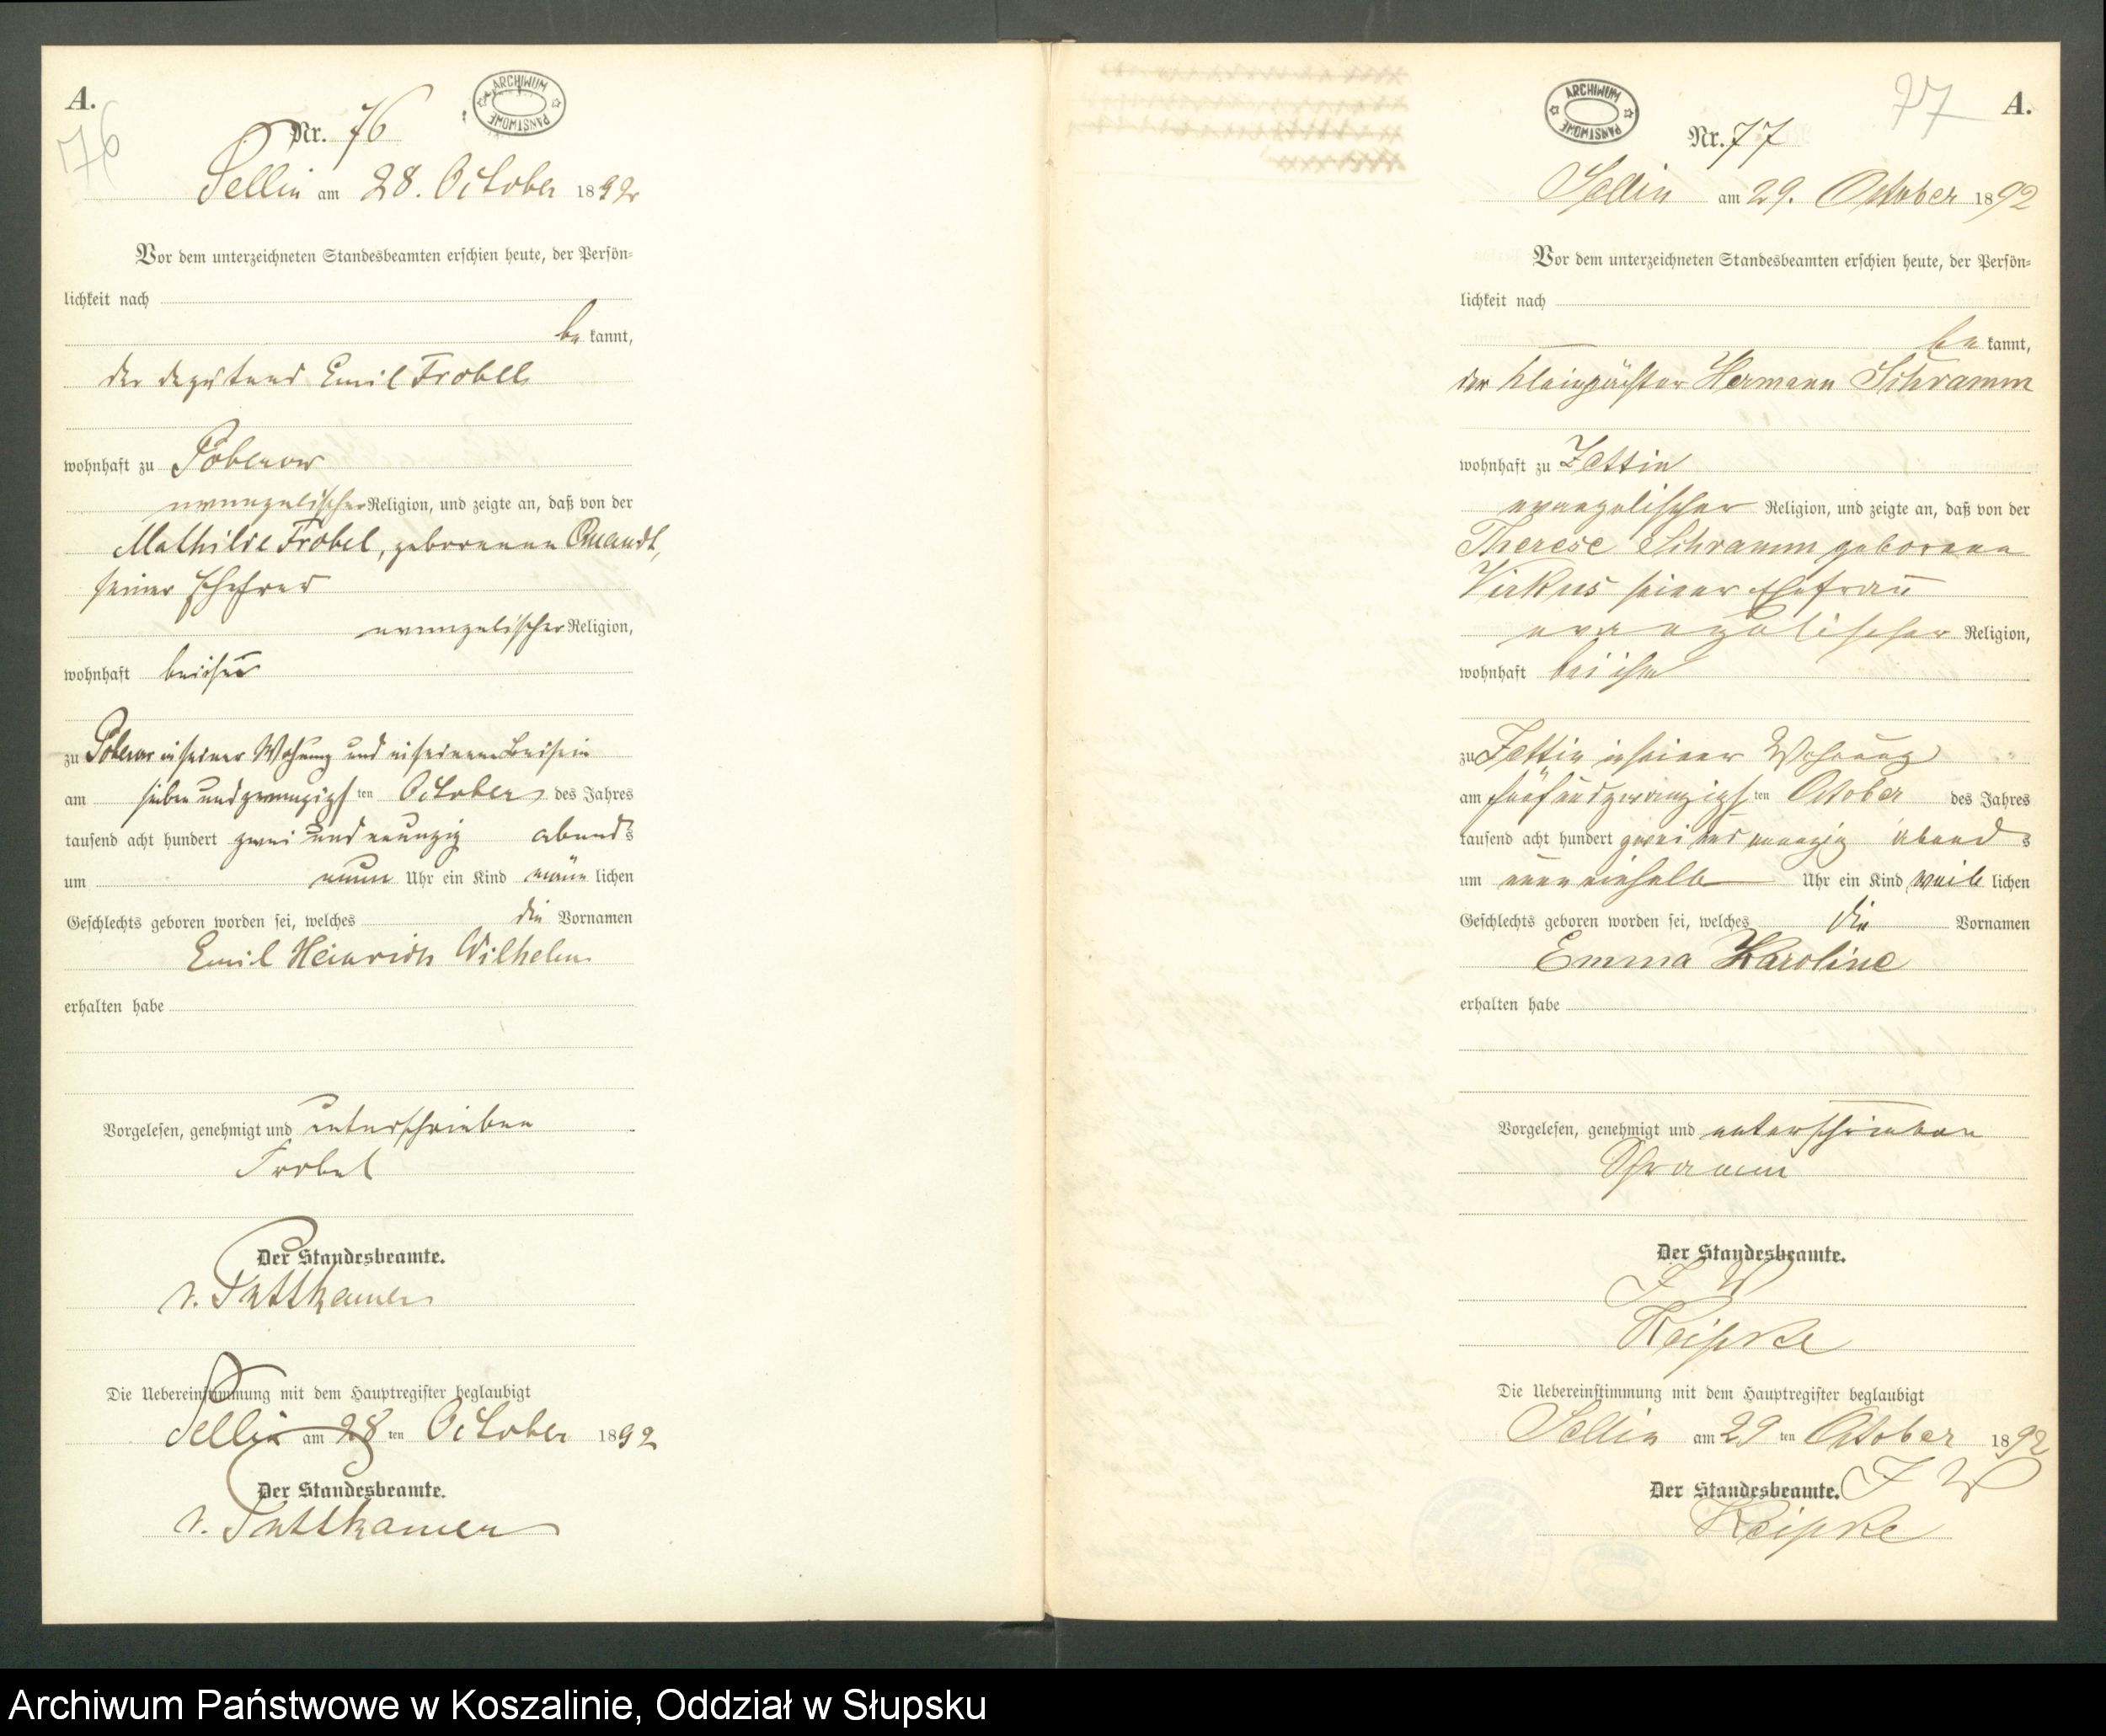 A.
76
ARCHIWUM PAŃSTWOWE
Nr. 76
Sellin am 28. October 1892
Vor dem unterzeichneten Standesbeamten erschien heute, der Persön-
lichkeit nach
be kannt,
der Deputand Emil Frobel
wohnhaft zu Poberow
evangelischer Religion, und zeigte an, daß von der
Mathilde Frobel, geborenen Quandt,
seiner Ehefrau
evangelischer Religion,
wohnhaft bei ihm
zu Poberow in seiner Wohnung und in seinem Beisein
am sieben und zwanzigsten October des Jahres
tausend acht hundert zwei und neunzig abends
um neun Uhr ein Kind männ lichen
Geschlechts geboren worden sei, welches die Vornamen
Emil Heinrich Wilhelm
erhalten habe
Vorgelesen, genehmigt und unterschrieben
Frobel
Der Standesbeamte.
v. Puttkamer
Die Uebereinstimmung mit dem Hauptregister beglaubigt
Sellin am 28 ten October 1892
Der Standesbeamte.
v. Puttkamer
ARCHIWUM PAŃSTWOWE
77
A.
Nr. 77
Sellin am 29. October 1892
Vor dem unterzeichneten Standesbeamten erschien heute, der Persön-
lichkeit nach
be kannt,
der Kleinpächter Hermann Schramm
wohnhaft zu Zettin
evangelischer Religion, und zeigte an, daß von der
Therese Schramm geborene
Virkus seiner Ehefrau
evangelischer Religion,
wohnhaft bei ihm
zu Zettin in seiner Wohnung
am fünfundzwanzigsten October des Jahres
tausend acht hundert zwei und neunzig abends
um neun einhalb Uhr ein Kind weib lichen
Geschlechts geboren worden sei, welches die Vornamen
Emma Karoline
erhalten habe
Vorgelesen, genehmigt und unterschrieben
Schramm
Der Standesbeamte.
J W
Die Uebereinstimmung mit dem Hauptregister beglaubigt
Sellin am 29 ten October 1892
Der Standesbeamte. J W
Archiwum Państwowe w Koszalinie, Oddział w Słupsku